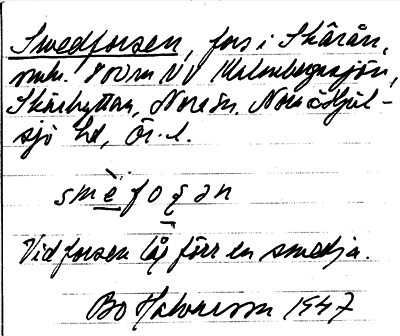 Smedforsen, fors i Skärån,
omkr. 700 m NV Malmbergssjön,
Skärhyttan, Nora sn. Nora o Hjul-
sjö hd, Ör. l.
smèfoʂən
Vid forsen låg förr en smedja.
Bo Halvarsson 1947